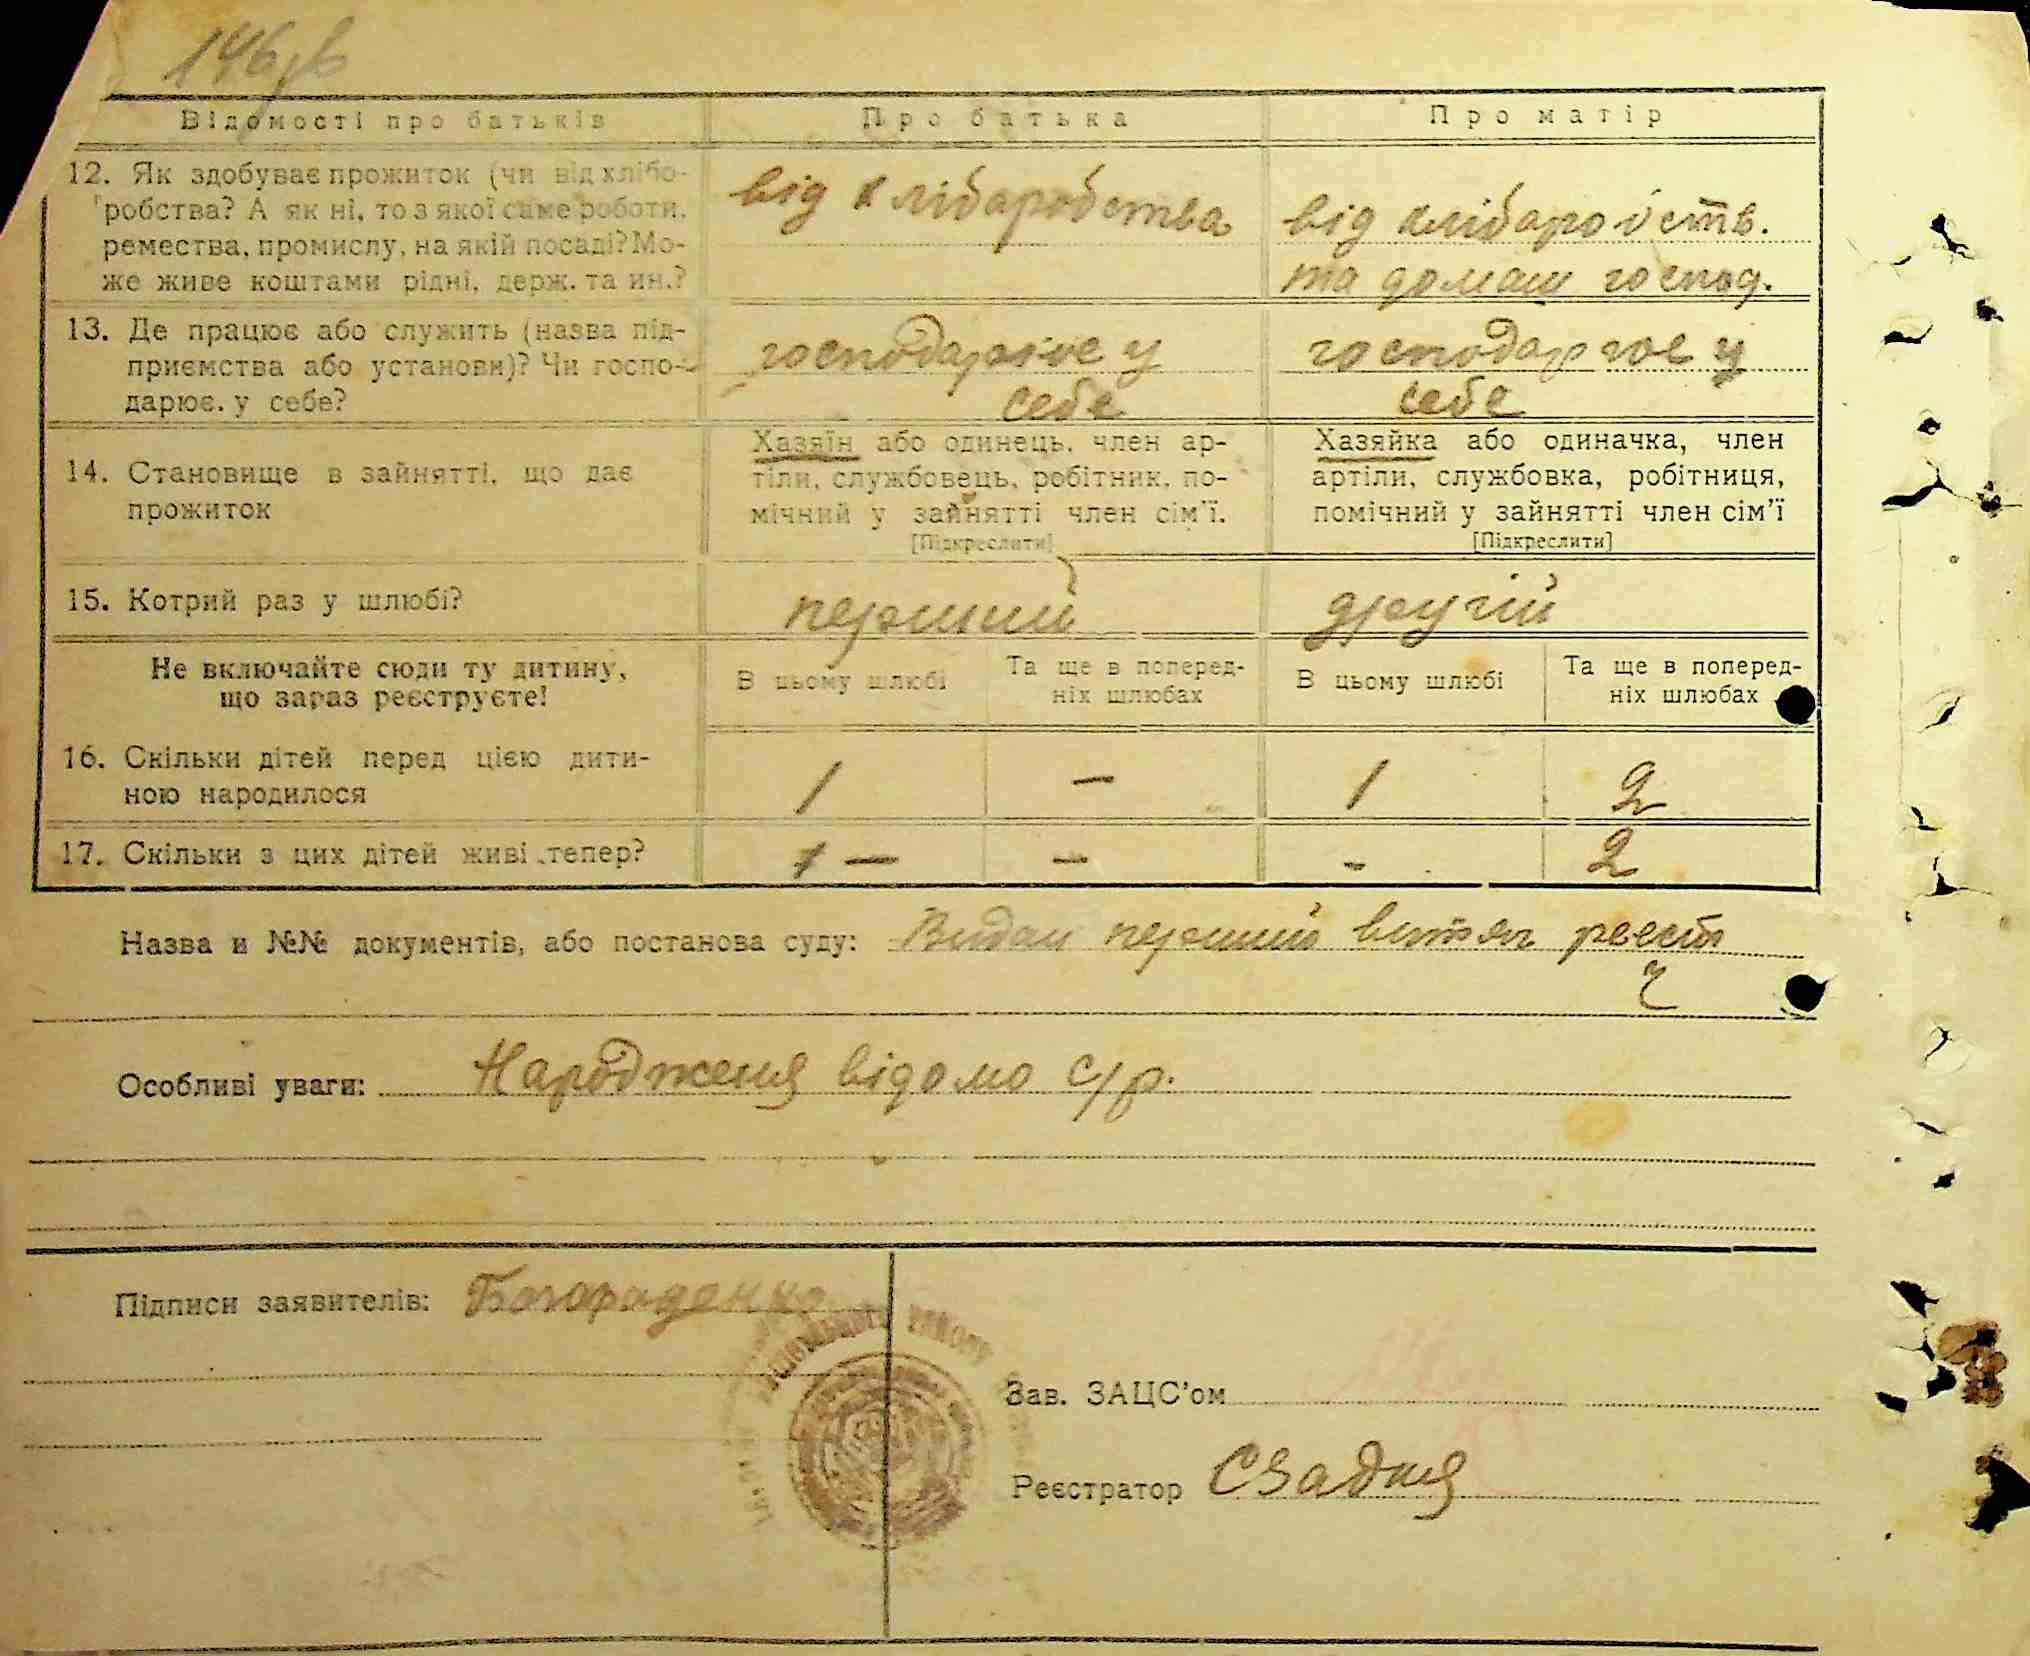 146
Відомості про батьків
Про батька
Про матір
12. Як здобуває прожиток (чи від хлібо-
робства? А як ні, то з якої саме роботи,
ремества, промислу, на якій посаді? Мо-
же живе коштами рідні, держ. та ин.?
від клібаробства
від клібаробств.
та домаш господ.
13. Де працює або служить (назва під-
приємства або установи)? Чи госпо-
дарює у себе?
господарює у
себе
господарює у
себе
14. Становище в зайнятті, що дає
прожиток
Хазяїн або одинець, член ар-
тіли, службовець, робітник, по-
мічний у зайнятті член сім'ї.
[Підкреслити]
Хазяйка або одиначка, член
артіли, службовка, робітниця,
помічний у зайнятті член сім'ї
[Підкреслити]
15. Котрий раз у шлюбі?
перший
другій
Не включайте сюди ту дитину,
що зараз реєструєте!
В цьому шлюбі
Та ще в поперед-
ніх шлюбах
В цьому шлюбі
Та ще в поперед-
ніх шлюбах
16. Скільки дітей перед цією дити-
ною народилося
1
—
1
2
17. Скільки з цих дітей живі тепер?
1 —
—
-
2
Назва и №№ документів, або постанова суду: Видан перший витяг реєст
Особливі уваги: Народженя відомо с/р.
Підписи заявителів: Богораденко
району
Зав. ЗАЦС'ом
Реєстратор СЗадня